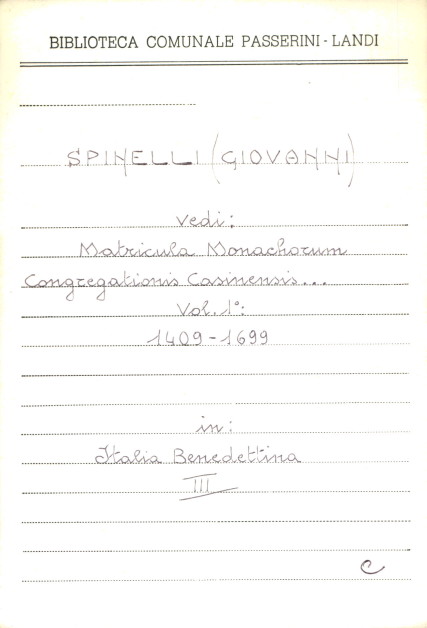 BIBLIOTECA COMUNALE PASSERINI-LANDI
SPINELLI (GIOVANNI)
vedi:
Matricula Monachorum
Congregationis Casinensis...
Vol. 1°:
1409-1699
in:
Italia Benedettina
III
C